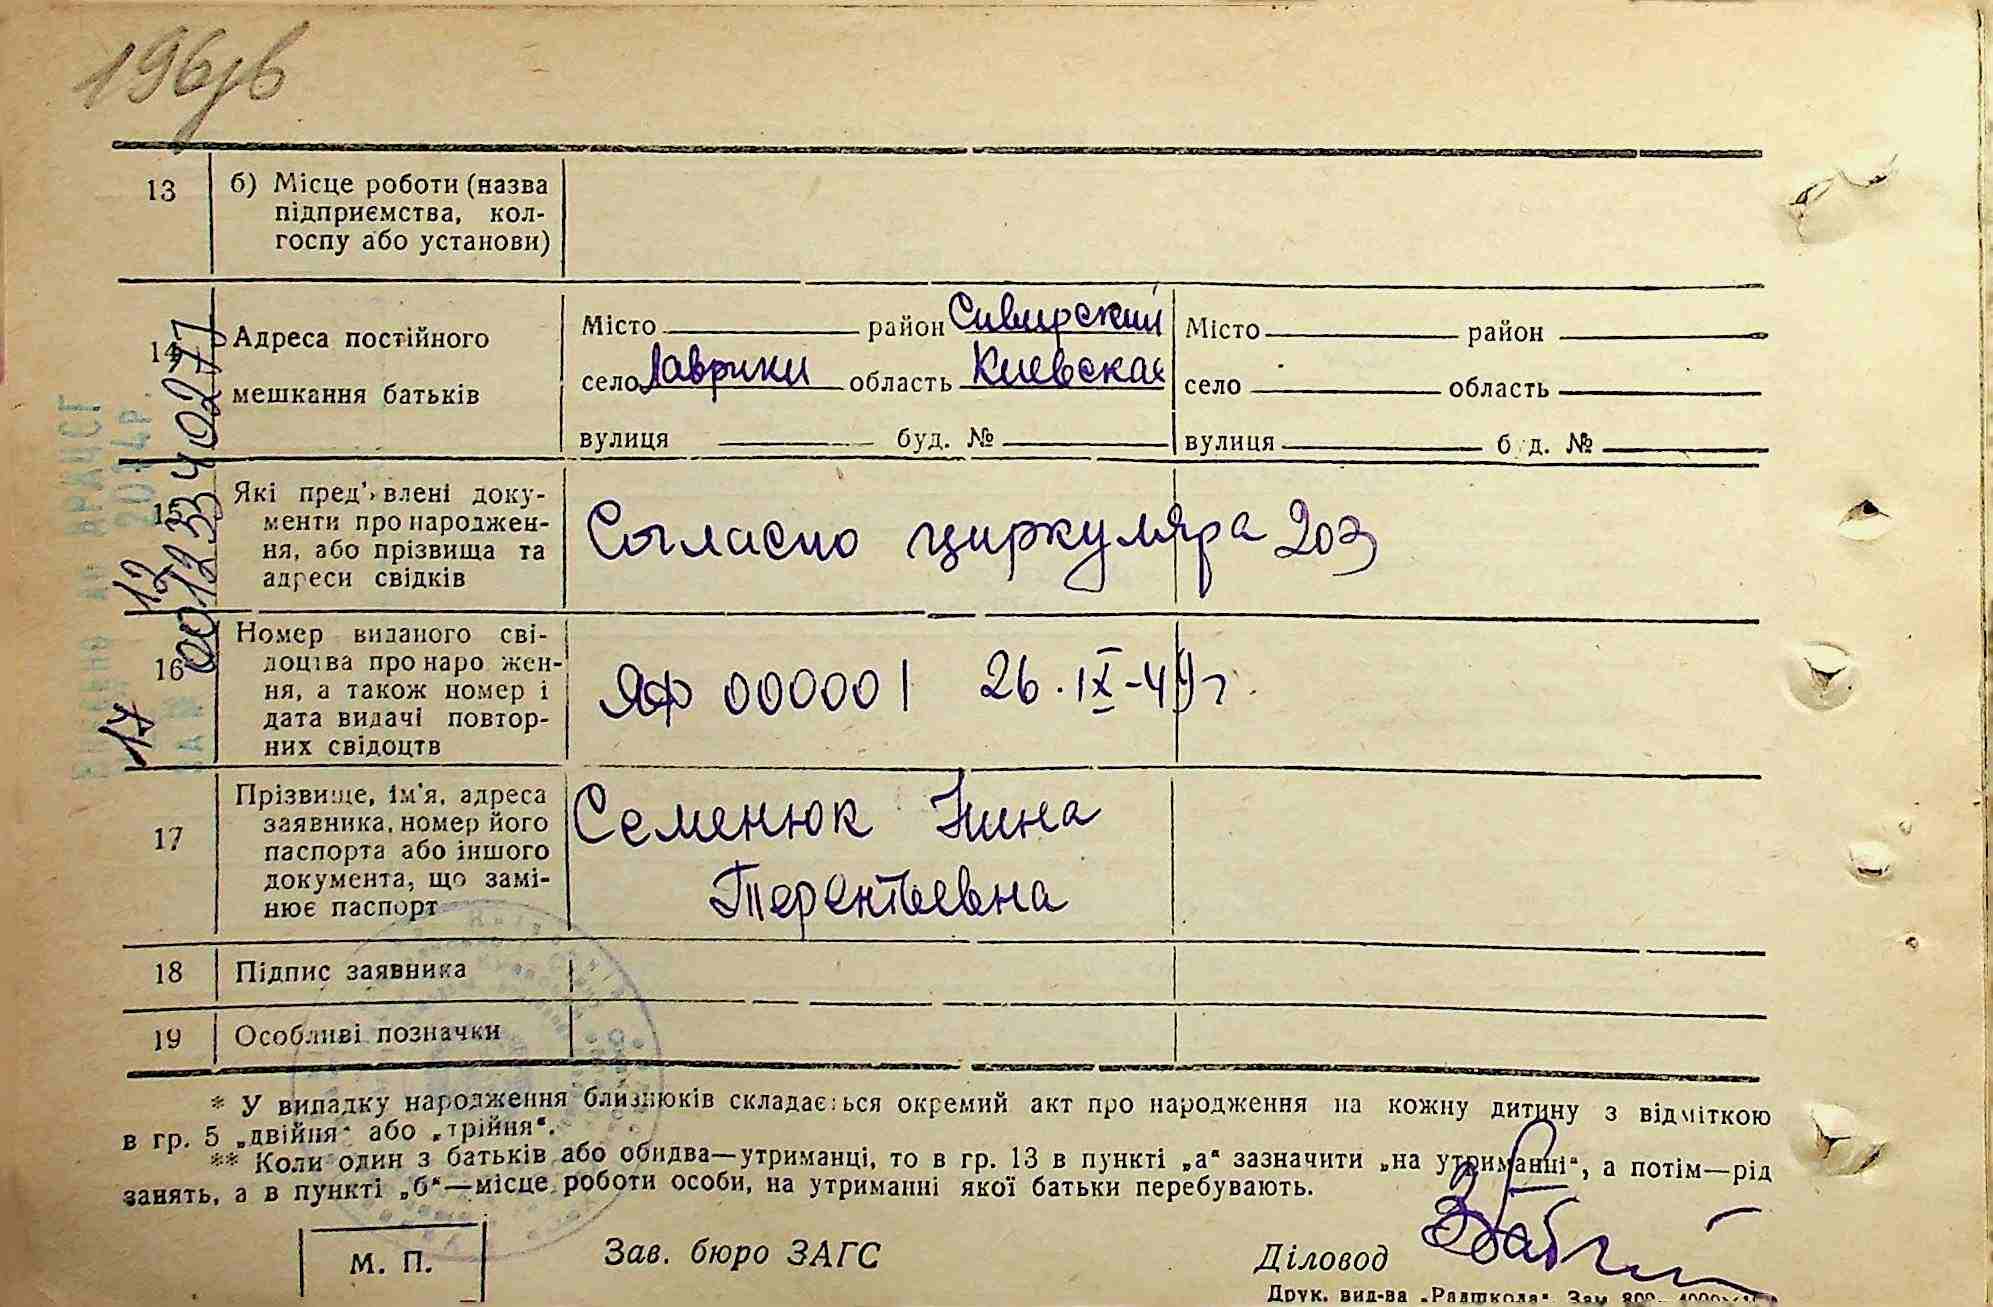 196
13
б) Місце роботи (назва
підприємства, кол-
госпу або установи)
14
Адреса постійного
мешкання батьків
Місто район Сивирский
село Лаврики область Киевская
вулиця буд. №
Місто район
село область
вулиця б д. №
15
Які пред' влені доку-
менти про народжен-
ня, або прізвища та
адреси свідків
Согласно циркуляра 203
16
Номер виданого сві-
доцтва про наро жен-
ня, а також номер і
дата видачі повтор-
них свідоцтв
ЯФ 000001 26.IX-49г.
17
Прізвище, ім'я, адреса
заявника, номер його
паспорта або іншого
документа, що замі-
нює паспорт
Семенюк Нина
Терентьевна
18
Підпис заявника
19
Особливі позначки
17 12
00123340277
* У випадку народження близнюків складається окремий акт про народження на кожну дитину з відміткою
в гр. 5 „двійня“ або „трійня“.
** Коли один з батьків або обидва—утриманці, то в гр. 13 в пункті „а“ зазначити „на утриманні“, а потім—рід
занять, а в пункті „б“—місце роботи особи, на утриманні якої батьки перебувають.
М. П.
Зав. бюро ЗАГС
Діловод
Друк. вид-ва „Радшкола“. Зам. 809